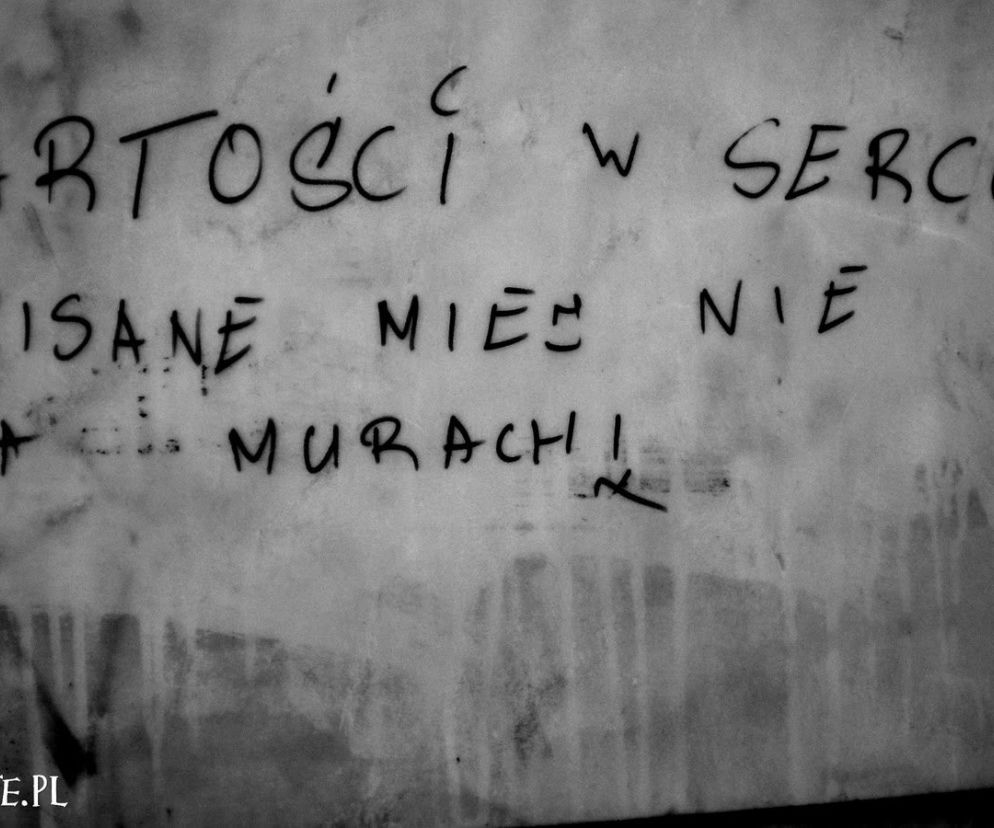 ARTOŚCI W SERCU
ISANE MIEĆ NIE
A MURACH!
E.PL